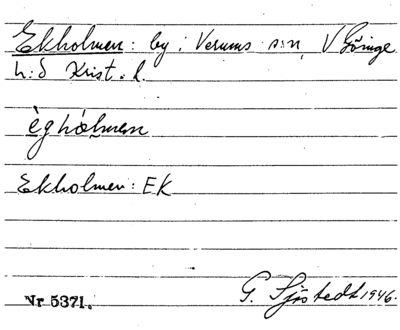 Ekholmen: by i Verums sn, V Göinge
h:d Krist. l.
èghólmen
Ekholmen: EK
Nr 5371. G. Sjöstedt 1946.